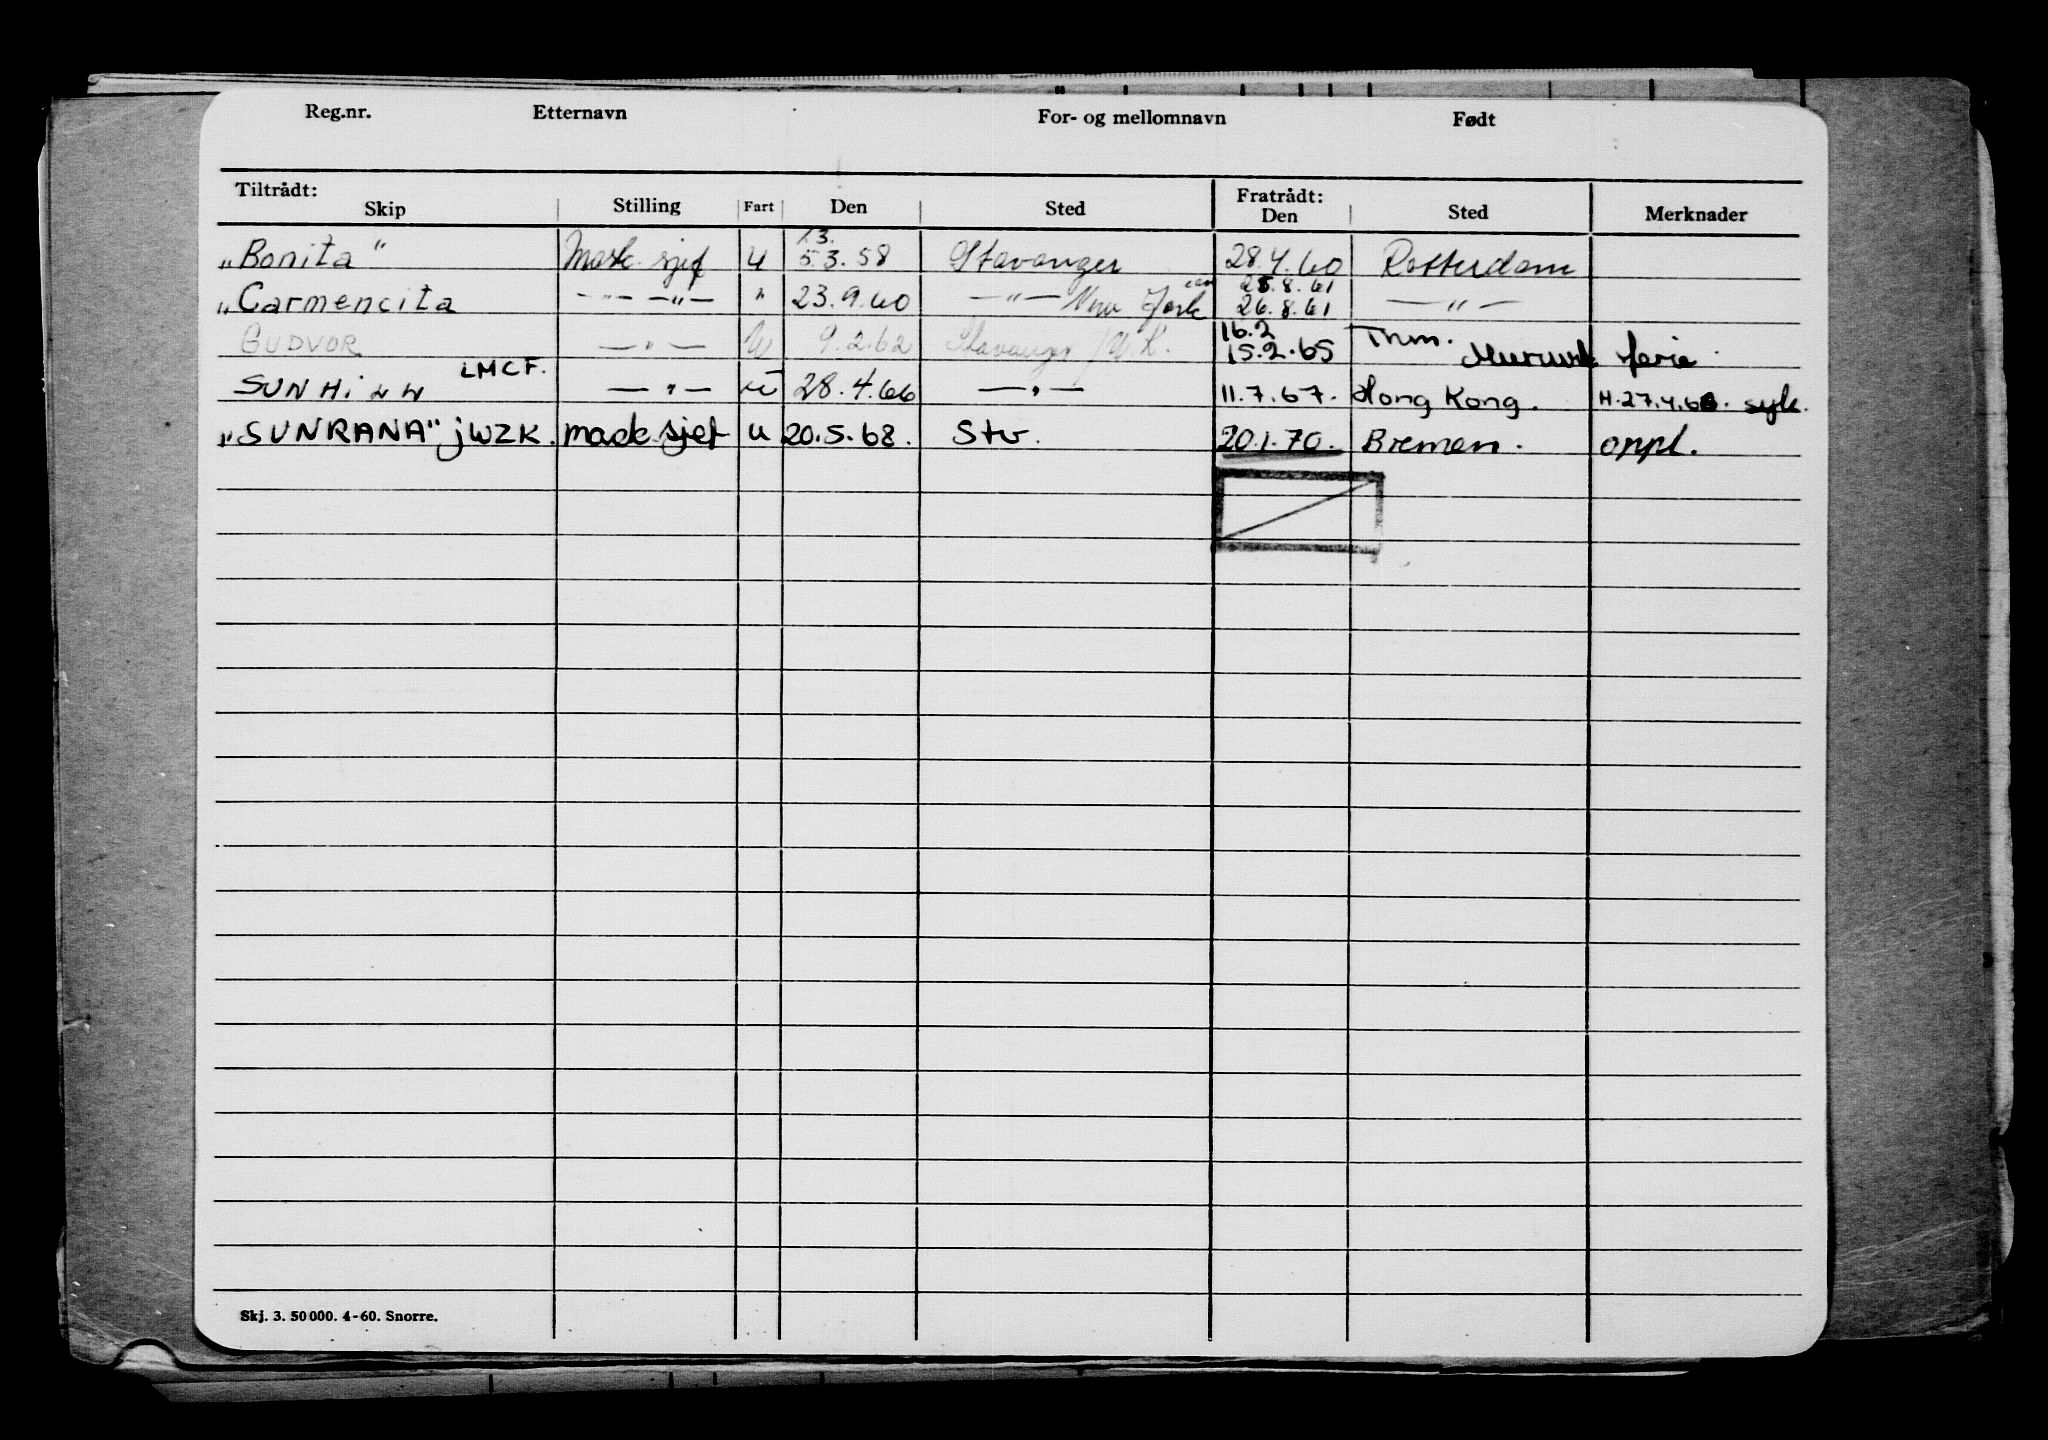 Reg.nr. Etternavn For- og mellomnavn Født
Tiltrådt: Fratrådt:
Skip Stilling Fart Den Sted Den Sted Merknader
13.
„Bonita" Mask. sjef U 5.3.58 Stavanger 28.4.60 Rotterdam
25.8.61
„Carmencita —"— —"— " 23.9.60 —"— New York 26.8.61 —"—
16.2
GUDVOR —"— U 9.2.62 Stavanger 15.2.65 ferie
LMCF.
SUN —"— U 28.4.66 —"— 11.7.67. Hong Kong. syk.
„SUNRANA" jWZK. mask sjef u 20.5.68. Stv. 20.1.70. Bremen. oppl.
Skj. 3. 50 000. 4-60. Snorre.